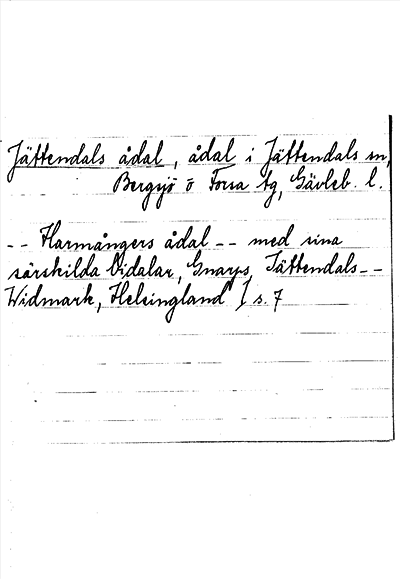 Jättendals ådal, ådal i Jättendals sn,
Bergsjö o Forsa tg, Gävleb. l.
-- Harmångers ådal -- med sina
särskilda Sidalar, Gnarps, Jättendals --
Widmark, Helsingland I s. 7